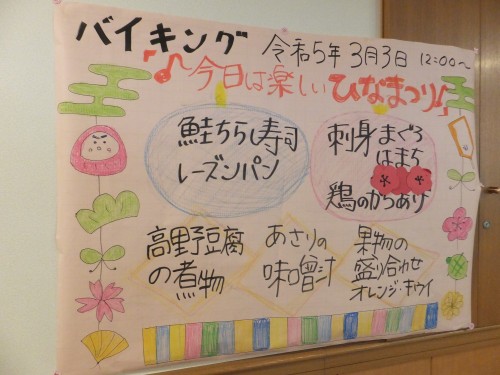 バイキング 令和5年 3月3日 12:00～
今日は楽しいひなまつり
鮭ちらし寿司
レーズンパン
刺身まぐろ
はまち
鶏のからあげ
高野豆腐
の煮物
あさりの
味噌汁
果物の
盛り合わせ
オレンジ・キウイ